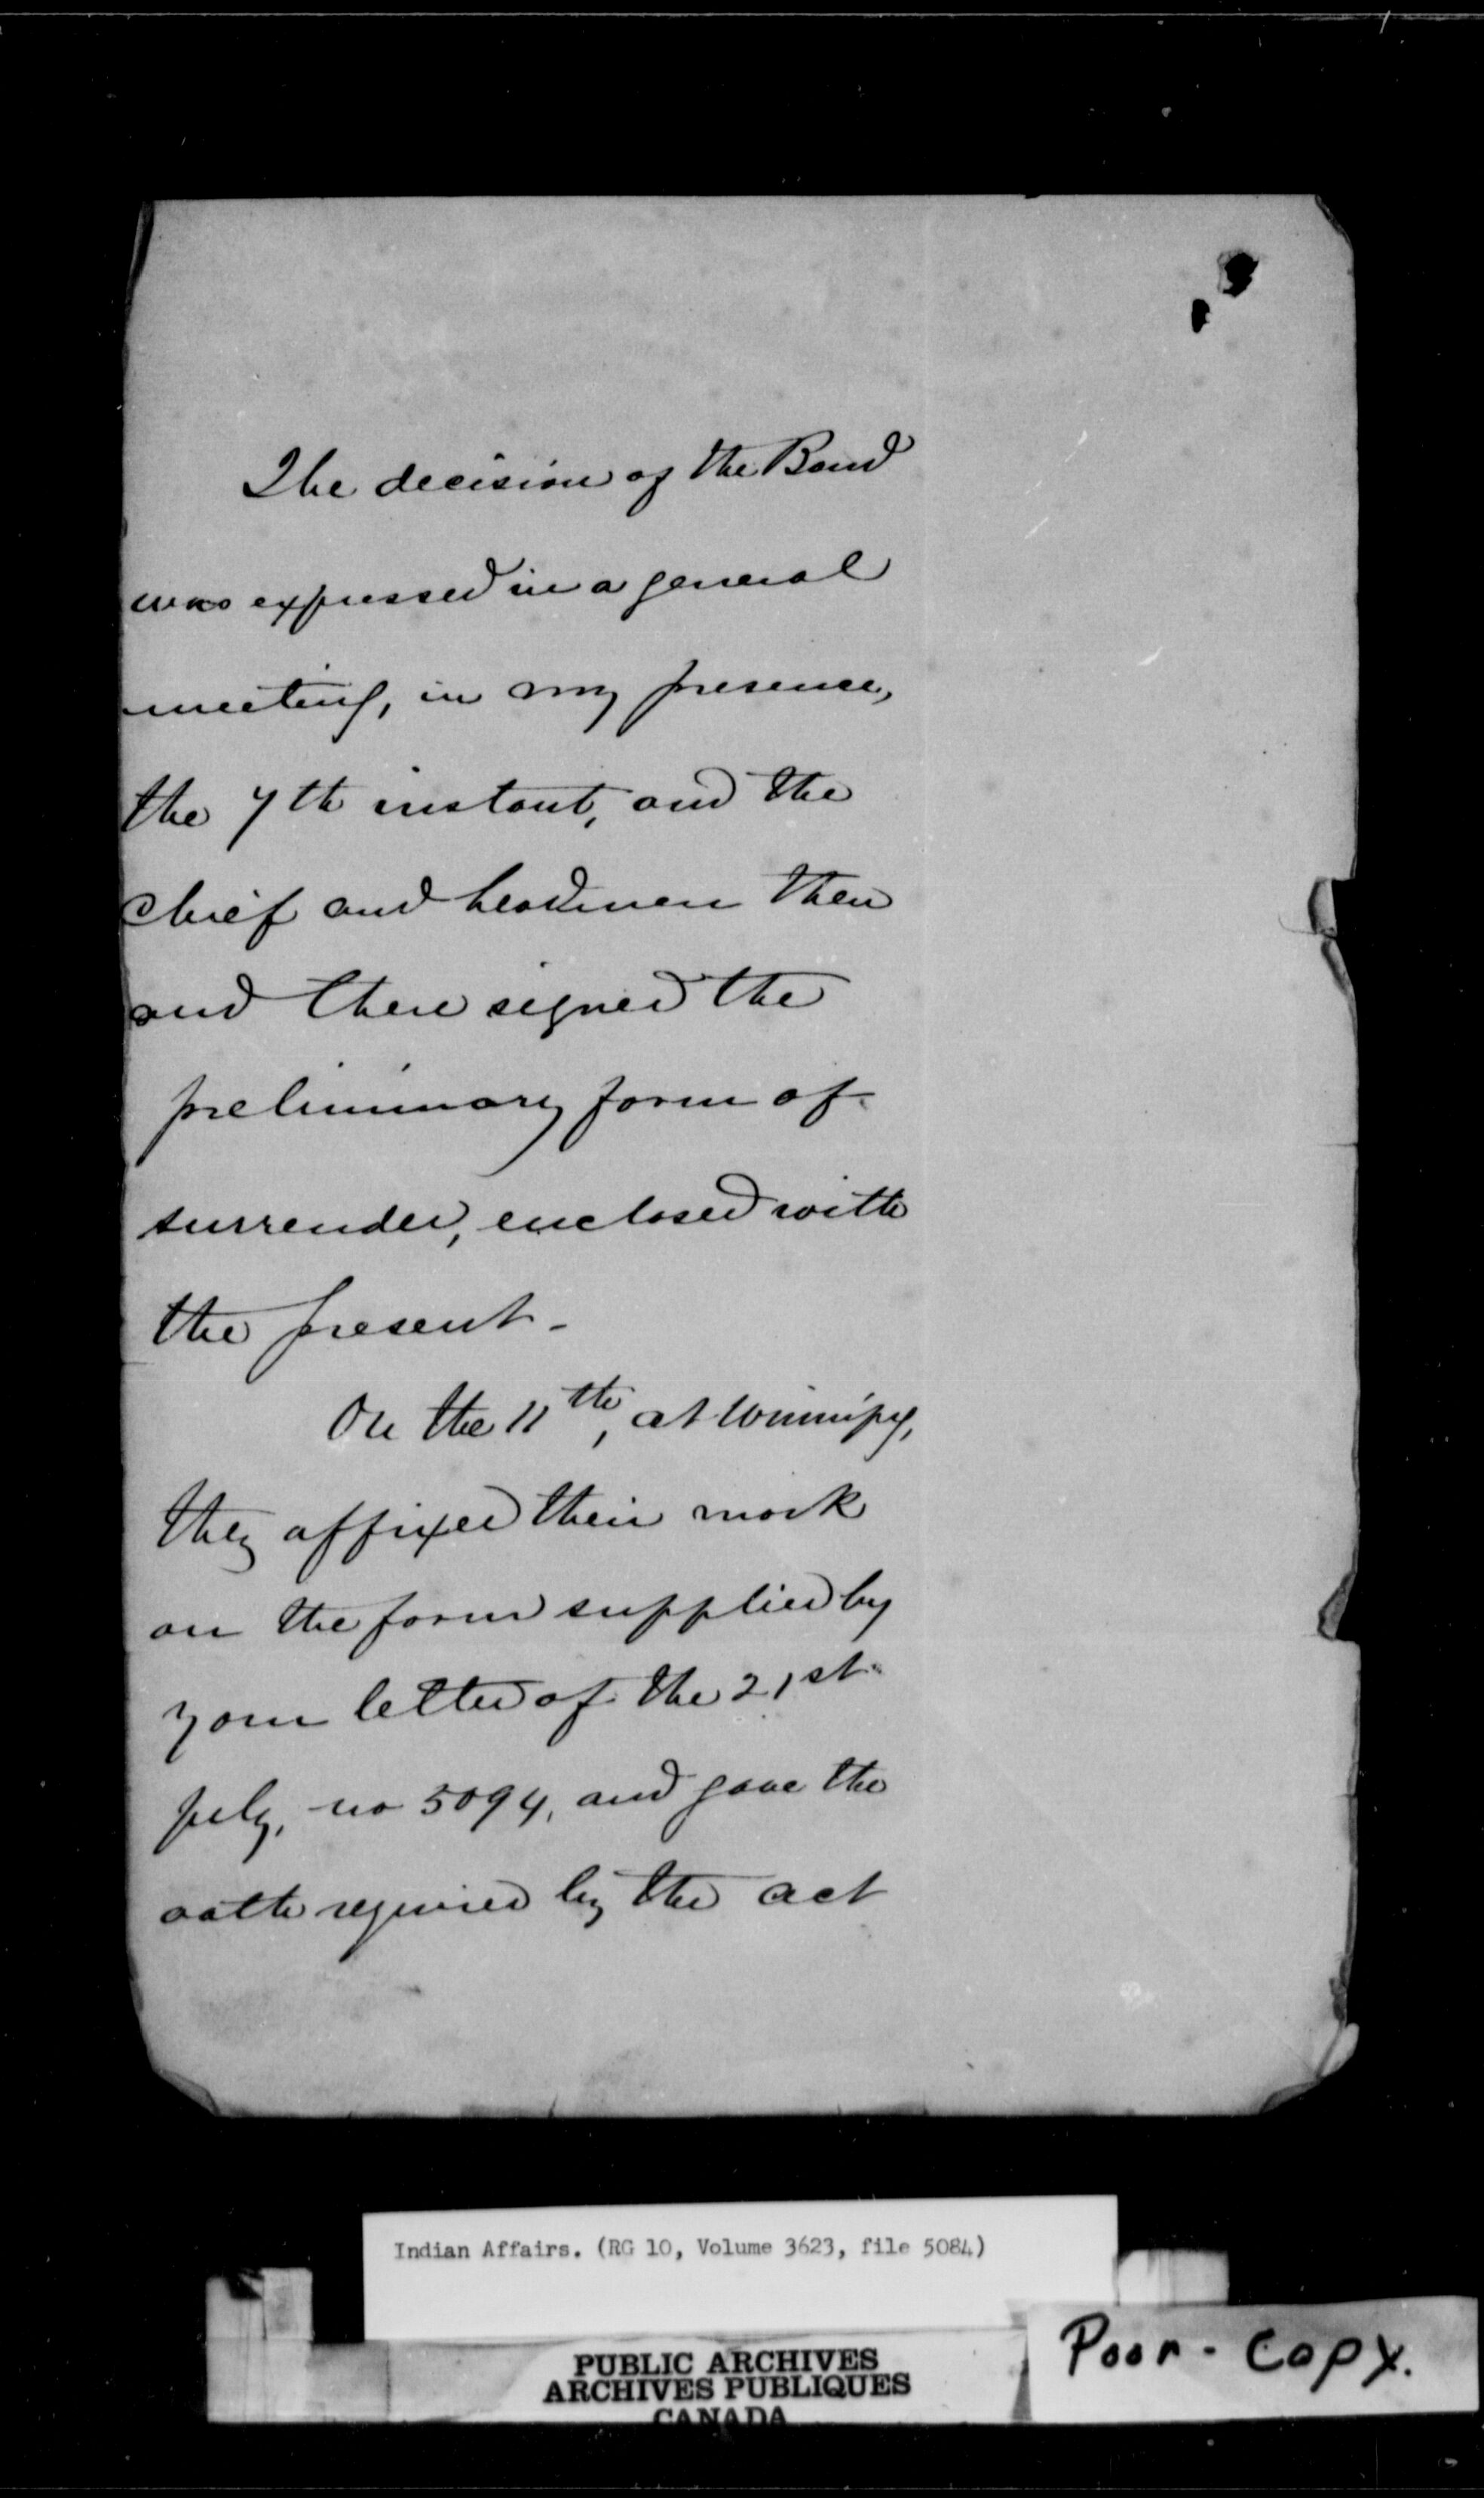 The decision of the Band
was expressed in a general
meeting, in my presence,
the 7th instant, and the
chief and headmen then
and there signed the
preliminary form of
surrender, enclosed with
the present -
On the 11th, at Winnipeg,
they affixed their mark
on the form supplied by
your letter of the 21st
July, no 5094, and gave the
oath required by the act
Indian Affairs. (RG 10, Volume 3623, file 5084)
PUBLIC ARCHIVES
ARCHIVES PUBLIQUES
CANADA
Poor - Copy.